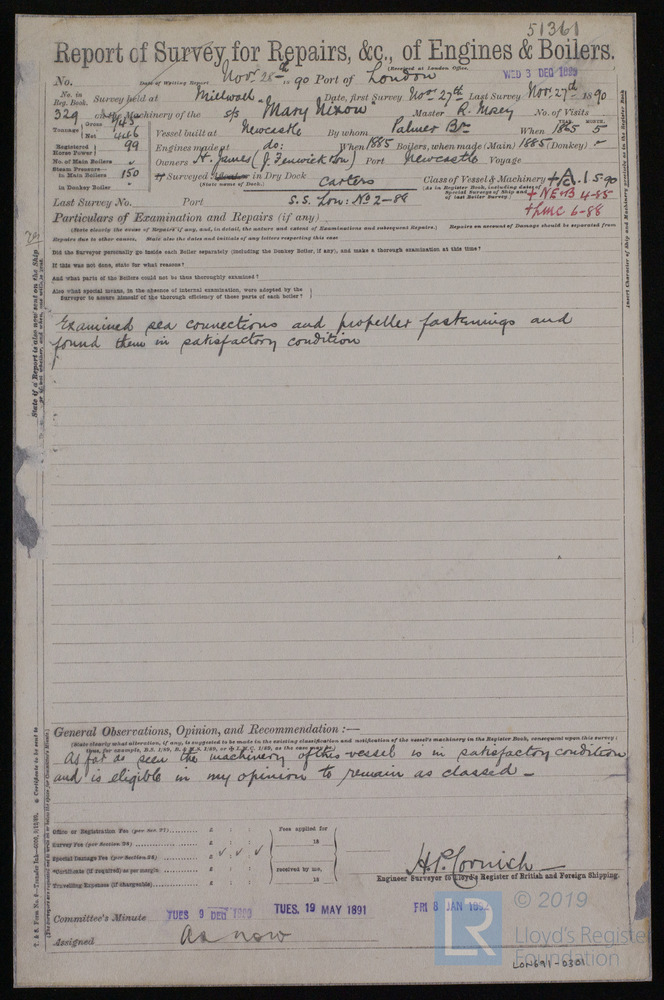 51361
Report of Survey for Repairs, &c., of Engines & Boilers.
(Received at London Office,
No. Date of Writing Report Nov 28th 1890 Port of London WED 3 DEC
No. in Reg. Book. Survey held at Millwall Date, first Survey Nov 27th Last Survey Nov 27th 1890
329 on the Machinery of the S/S "Mary Nixon" Master R. Mosey No. of Visits
Tonnage Gross Net 466 Vessel built at Newcastle By whom Palmer Brs When 1865 YEAR. MONTH. 5
Registered Horse Power 99 Engines made at do: When 1885 Boilers, when made (Main) 1885 (Donkey)
No. of Main Boilers Owners H. James (J. Fenwick & Son) Port Newcastle Voyage
Steam Pressure in Main Boilers 150 Surveyed in Dry Dock Carters Class of Vessel & Machinery +A.1.5-90
(State name of Dock.) (As in Register Book, including dates of Special Surveys of Ship and of last Boiler Survey)
in Donkey Boiler + NE&B 4-85
Last Survey No. Port S.S. Lon: No 2-88 + LMC 6-88
Particulars of Examination and Repairs (if any)
(State clearly the cause of Repairs if any, and, in detail, the nature and extent of Examinations and subsequent Repairs.) Repairs on account of Damage should be separated from
Repairs due to other causes. State also the dates and initials of any letters respecting this case
Did the Surveyor personally go inside each Boiler separately (including the Donkey Boiler, if any), and make a thorough examination at this time?
If this was not done, state for what reasons?
And what parts of the Boilers could not be thus thoroughly examined?
Also what special means, in the absence of internal examination, were adopted by the
Surveyor to assure himself of the thorough efficiency of those parts of each boiler?
Examined sea connections and propeller fastenings and
found them in satisfactory condition
General Observations, Opinion, and Recommendation :—
(State clearly what alteration, if any, is suggested to be made in the existing classification and notification of the vessel's machinery in the Register Book, consequent upon this survey:
As far as seen the machinery of this vessel is in satisfactory condition
and is eligible in my opinion to remain as classed —
Office or Registration Fee £ : : Fees applied for
Survey Fee (per Section 28) £ : : 18
Special Damage Fee (per Section 28) £ : :
*Certificate (if required) as per margin £ : : received by me,
Travelling Expenses (if chargeable) £ : : 18
H.P. Cornish
Engineer Surveyor to Lloyd's Register of British and Foreign Shipping.
Committee's Minute TUES 9 DEC TUES. 19 MAY 1891 FRI 8 JAN 1892
Assigned as now
© 2019
LR
Lloyd's Register
Foundation
LON691-0301